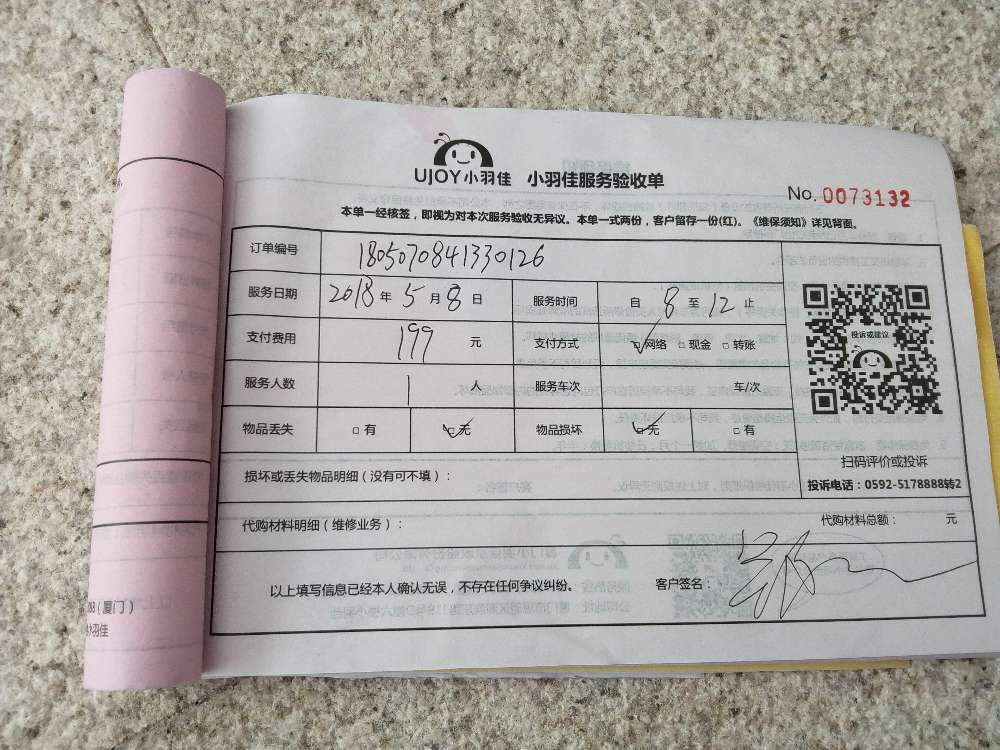 UJOY小羽佳 小羽佳服务验收单
No. 0073132
本单一经核签，即视为对本次服务验收无异议。本单一式两份，客户留存一份(红)。《维保须知》详见背面。
订单编号 180507084133​0126
服务日期 2018年5月8日 服务时间 自8至12止
支付费用 199元 支付方式 □网络 □现金 □转账
服务人数 1人 服务车次 车/次
物品丢失 □有 □无 物品损坏 □无 □有
投诉或建议
扫码评价或投诉
投诉电话：0592-5178888转2
损坏或丢失物品明细（没有可不填）：
代购材料明细（维修业务）： 代购材料总额： 元
以上填写信息已经本人确认无误，不存在任何争议纠纷。 客户签名：
（厦门）
小羽佳